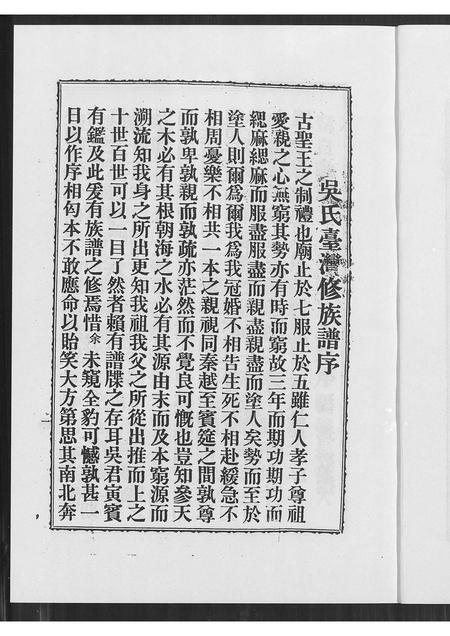 吳氏臺灣修族譜序
古聖王之制禮也廟止於七服止於五雖仁人孝子尊祖
愛親之心無窮其勢亦有時而窮故三年而期功期功而
緦麻緦麻而服盡服盡而親盡親盡而塗人矣勢而至於
塗人則爾為爾我為我冠婚不相告生死不相赴緩急不
相周憂樂不相共一本之親視同秦越至賓筵之間孰尊
而孰卑孰親而孰疏亦茫然而不覺良可慨也豈知參天
之木必有其根朝海之水必有其源由末而及本窮源而
溯流知我身之所出更知我祖我父之所從出推而上之
十世百世可以一目了然者賴有譜牒之存耳吳君寅賓
有鑑及此爰有族譜之修焉惜余未窺全豹可憾孰甚一
日以作序相匄本不敢應命以貽笑大方第思其南北奔
一